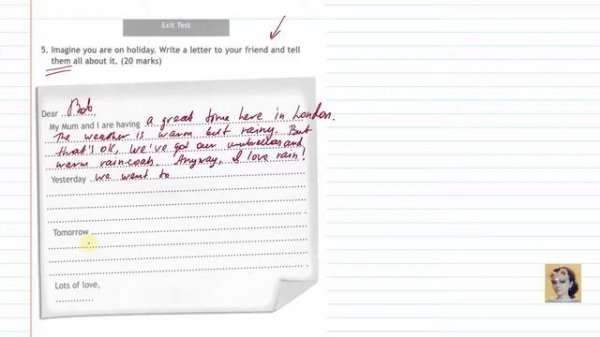 Exit Test
5. Imagine you are on holiday. Write a letter to your friend and tell
them all about it. (20 marks)
Dear Bob,
My Mum and I are having a great time here in London.
The weather is warm but rainy. But
that's OK, we've got our umbrellas and
warm raincoats. Anyway, I love rain!
Yesterday we went to
Tomorrow
Lots of love,